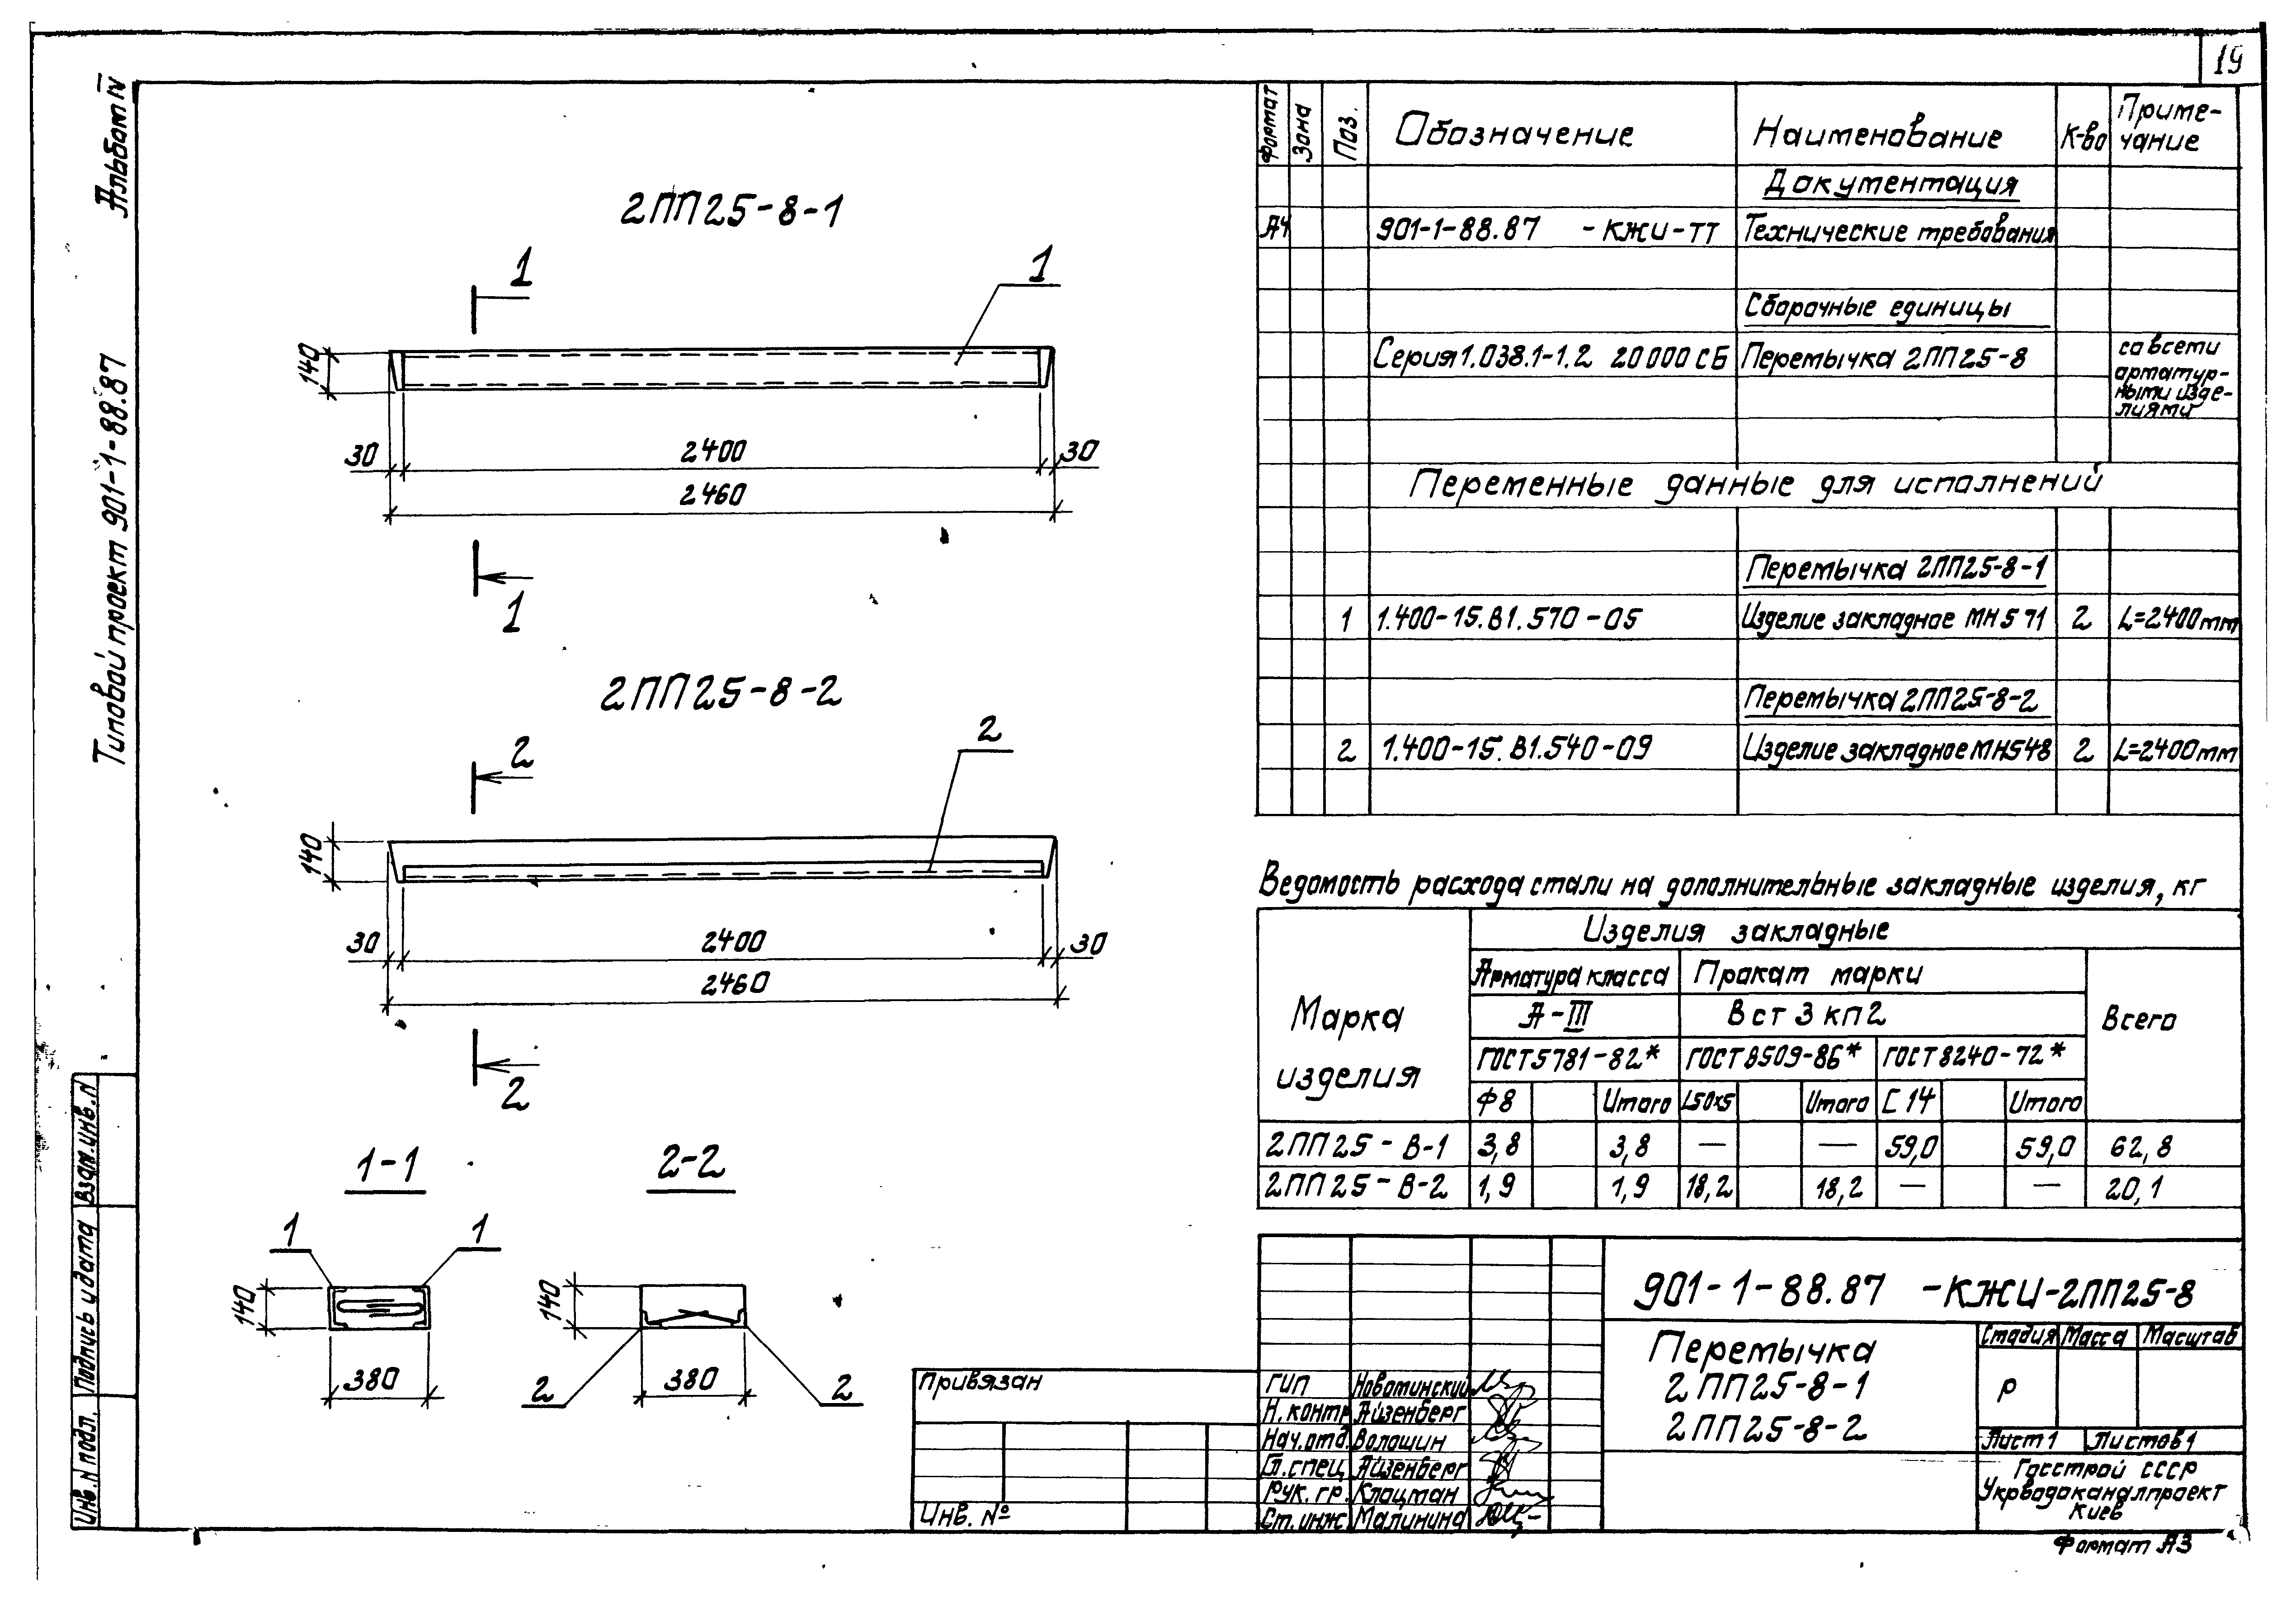 19
Альбом IV
Типовой проект 901-1-88.87
Взам.инв.N
Подпись и дата
Инв.N подл.
2ПП25-8-1
1
1
140
30
2400
30
2460
1
2ПП25-8-2
2
2
140
30
2400
30
2460
2
1-1
2-2
1
1
140
380
140
380
2
2
Формат
Зона
Поз.
Обозначение
Наименование
К-во
Приме-
чание
Документация
А4 901-1-88.87 -КЖИ-ТТ Технические требования
Сборочные единицы
Серия 1.038.1-1.2 20000СБ Перемычка 2ПП25-8
со всеми
арматур-
ными изде-
лиями
Переменные данные для исполнений
Перемычка 2ПП25-8-1
1 1.400-15.В1.570-05 Изделие закладное МН571 2 L=2400мм
Перемычка 2ПП25-8-2
2 1.400-15.В1.540-09 Изделие закладное МН548 2 L=2400мм
Ведомость расхода стали на дополнительные закладные изделия, кг
Марка
изделия
Изделия закладные
Арматура класса Прокат марки
А-III Вст3кп2
Всего
ГОСТ5781-82* ГОСТ8509-86* ГОСТ8240-72*
Ф8 Итого L50x5 Итого [14 Итого
2ПП25-8-1 3,8 3,8 — — 59,0 59,0 62,8
2ПП25-8-2 1,9 1,9 18,2 18,2 — — 20,1
901-1-88.87 -КЖИ-2ПП25-8
Перемычка
2ПП25-8-1
2ПП25-8-2
Стадия Масса Масштаб
Р
Лист 1 Листов 1
Госстрой СССР
Укрводоканалпроект
Киев
Привязан
Инв. №
ГИП Новотинский
Н.контр. Айзенберг
Нач.отд. Волошин
Гл.спец. Айзенберг
Рук.гр. Клоцман
Ст.инж. Малинина
Формат А3